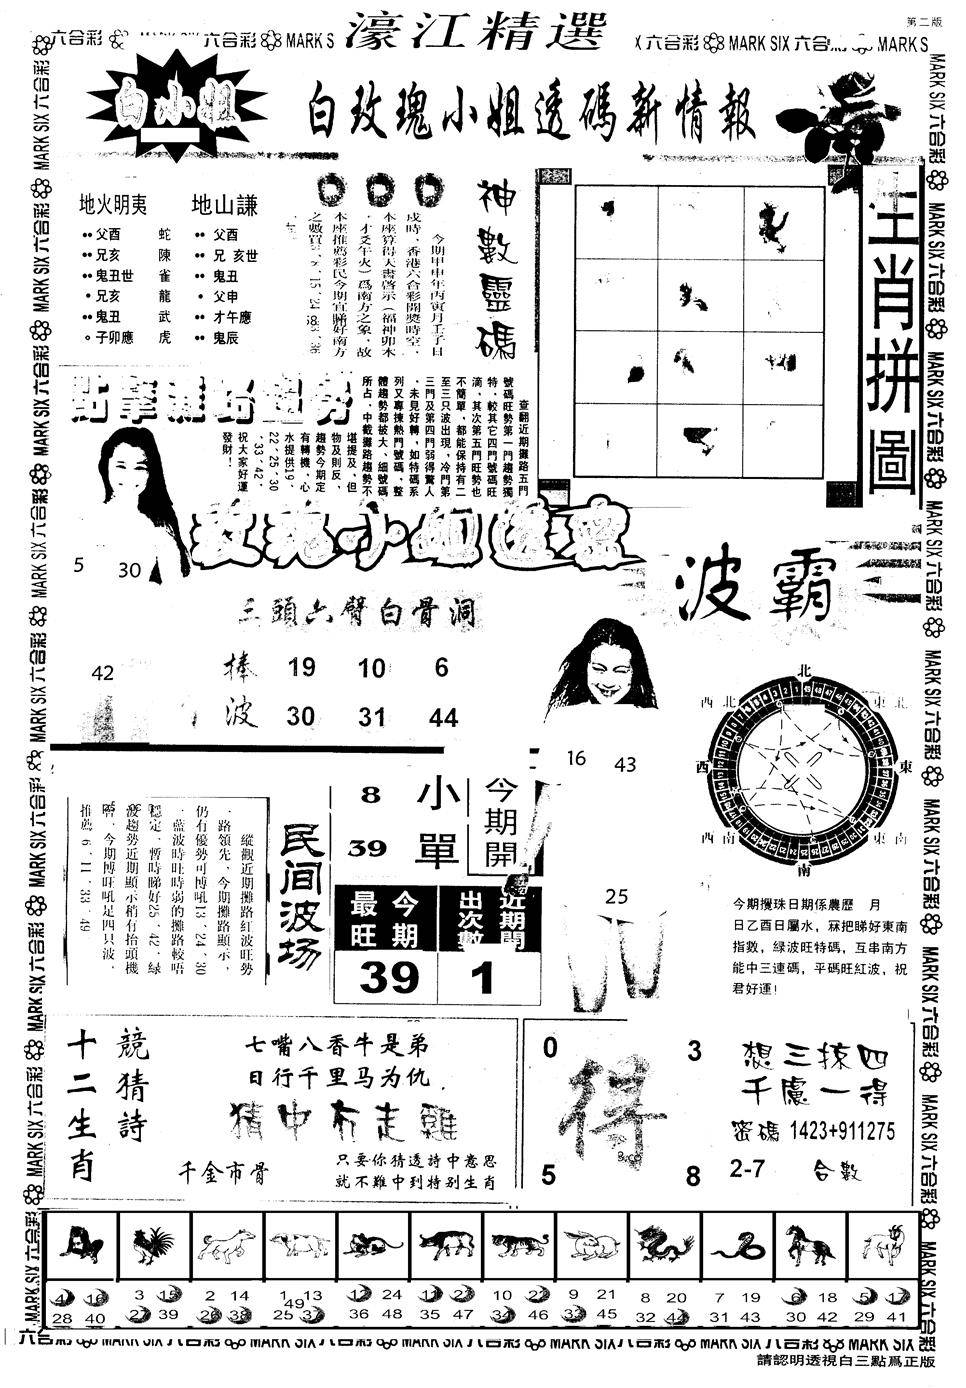 第二版
濠江精選
六合彩 MARK SIX 六合彩 MARK S
X 六合彩 MARK SIX 六合彩 MARK S
白小姐
白玫瑰小姐透碼新情報
地火明夷
父酉 蛇
兄亥 陳
鬼丑世 雀
兄亥 龍
鬼丑 武
子卯應 虎
地山謙
父酉
兄 亥世
鬼丑
父申
才午應
鬼辰
神數靈碼
今期甲申年丙寅月壬子日
戌時、香港六合彩開獎時空、
本座算得天書啓示（福神卯木
、才爻午火）爲南方之象、故
本座推薦彩民今期宜睇好南方
之數買
生肖拼圖
查翻近期攤路五門
號碼旺勢第一門趨勢獨
特，較其它四門號碼旺
滴，其次第五門旺勢也
不簡單，都能保持有二
至三只波出現，冷門第
三門及第四門弱得驚人
，未見好轉，如特碼系
列又專揀熱門號碼，整
體趨勢都被大、細號碼
所占，中截攤路趨勢不
堪提及，但
物及則反，
趨勢今期定
有轉機，心
水提供19、
22、25、30
、33、42，
祝大家好運
發財！
5 30
42
玫瑰小姐透密
三頭六臂白骨洞
捧波
19 10 6
30 31 44
波霸
16 43
25
北
西北
東北
西
東
西南
東南
南
今期攪珠日期係農歷 月
日乙酉日屬水，冧把睇好東南
指數，緑波旺特碼，互串南方
能中三連碼，平碼旺紅波，祝
君好運！
民间波场
縱觀近期攤路紅波旺勢
一路領先、今期攤路顯示，
仍有優勢可博吼13、24、30
、藍波時旺時弱的攤路較唔
穩定、暫時睇好25、42、緑
波趨勢近期顯示稍有抬頭機
嘈、今期博旺吼足四只波、
推薦 6、11、33、49
8 小
39 單
今期開
今期最旺
39
近期開出次數
1
競猜詩
十二生肖
七嘴八香牛是弟
日行千里马为仇
千金市骨
只要你猜透詩中意思
就不難中到特别生肖
0 3
得
5 8
想三掠四
千慮一得
密碼 1423+911275
2-7 合數
4 16 28 40
3 15 27 39
2 14 26 38
1 13 25 37 49
12 24 36 48
11 23 35 47
10 22 34 46
9 21 33 45
8 20 32 44
7 19 31 43
6 18 30 42
5 17 29 41
六合彩 MARK SIX 六合彩 MARK SIX 六合彩 MARK SIX 六合彩 MARK SIX 六合彩 MARK SIX 六合彩 MARK SIX
請認明透視白三點爲正版